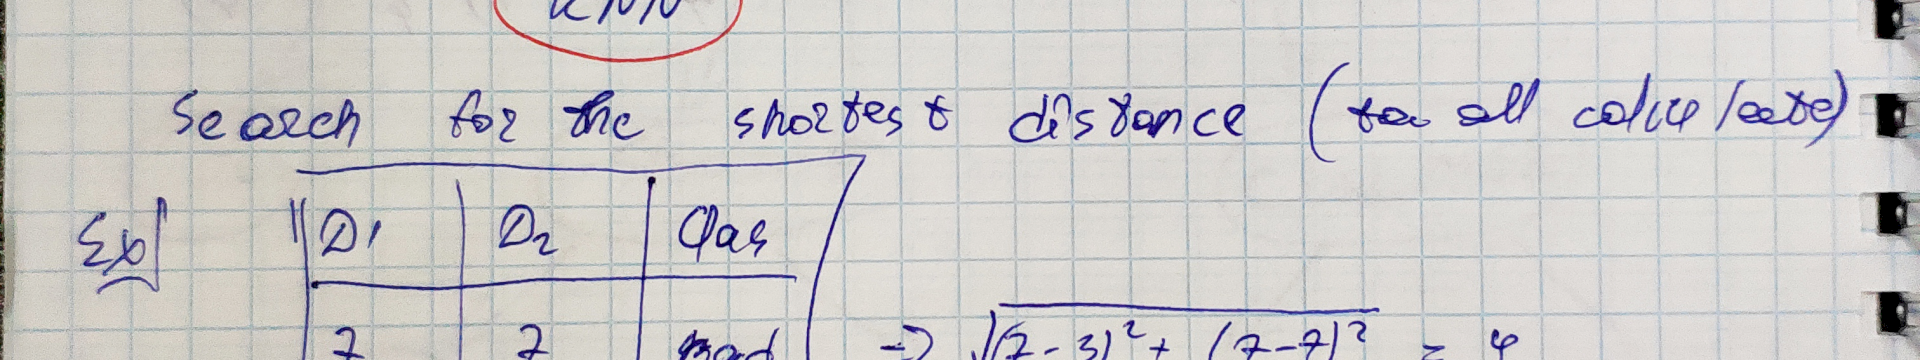 KNN
Search for the shortest distance (to all calculate)
Ex D1 D2 Class
7 7 Bad -> √(7-3)²+(7-7)² = 4